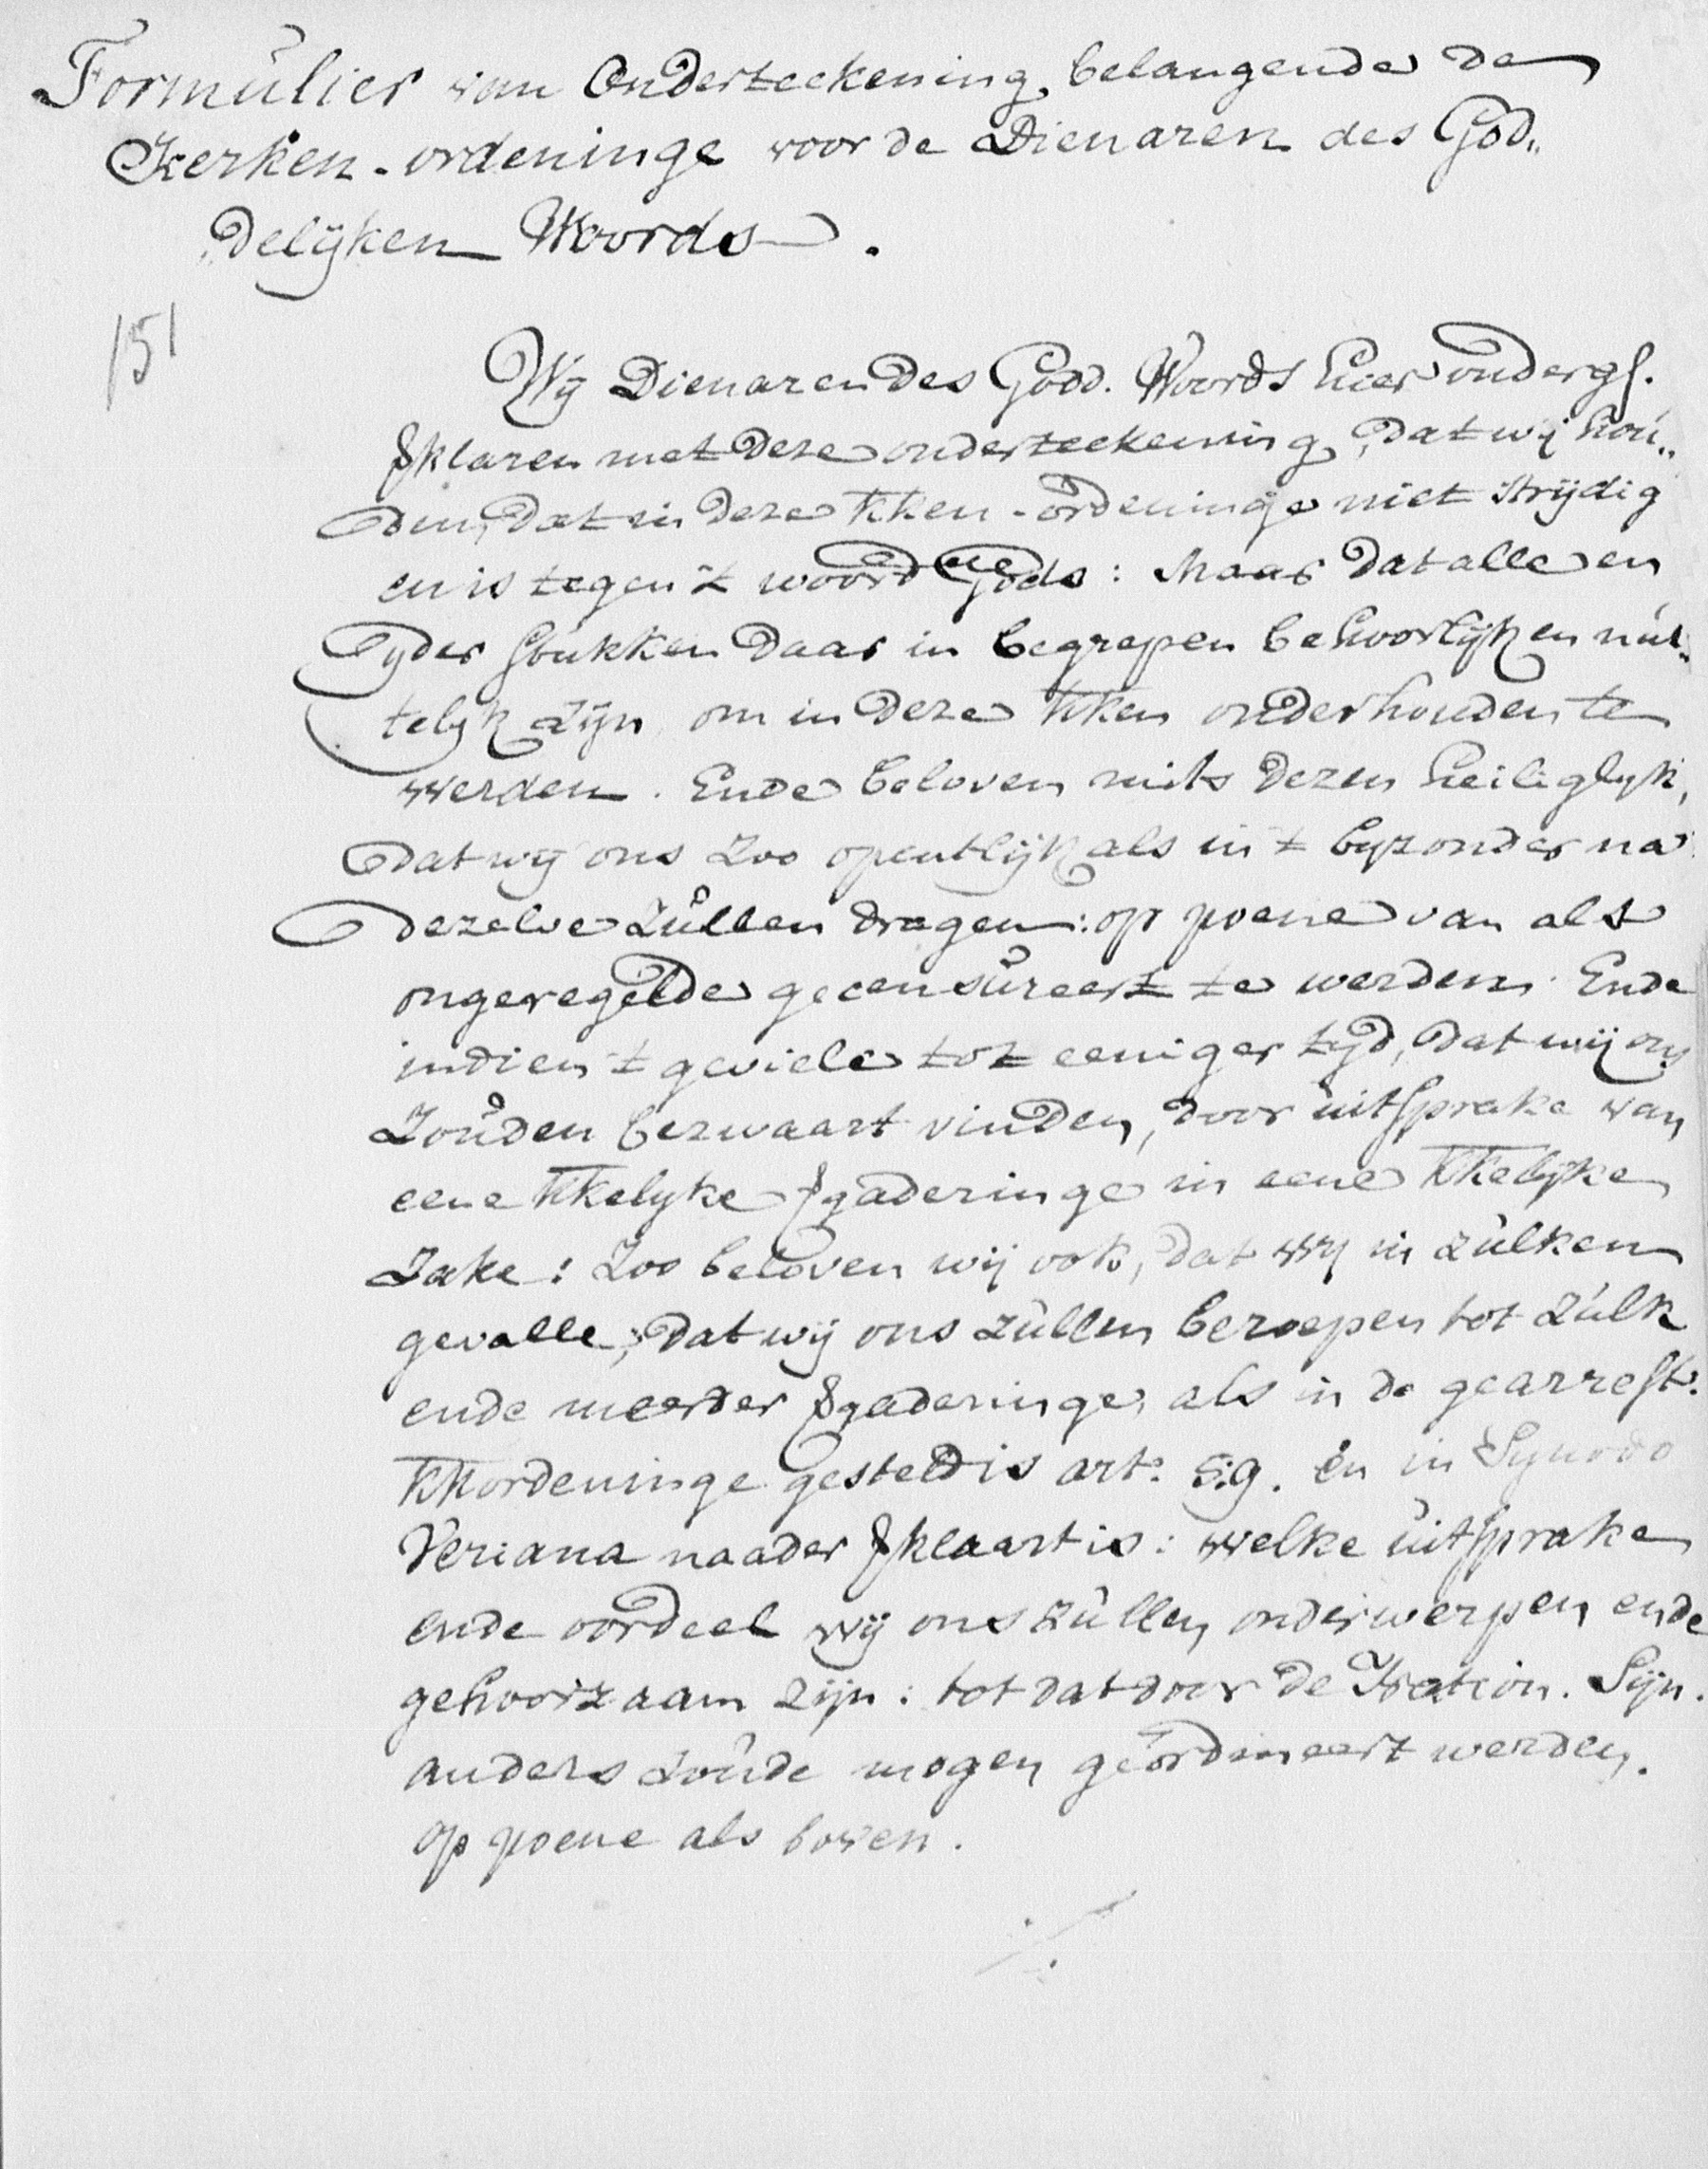 Formulier van Onderteekening, belangende de
Kerken-ordeninge voor de Dienaren des God„
delijken Woords.
151
Wij Dienaren des Godd. Woords hier ondergs.
Vklaren met deze onderteekening, dat wij hou„
den, dat in deze Kken-ordeninge niet strijdig
en is tegen 't woord Gods: Maar dat alle en
yder stukken daar in begrepen behoorlijk en nut„
telyk zijn om in deze Kken onderhouden te
werden. Ende beloven mits dezen heiliglyk,
dat wij ons zoo opentlijk als in 't byzonder na
dezelve zullen dragen: op poene van als
ongeregelde gecensureert te werden. Ende
indien 't geviele tot eeniger tyd, dat wij ons
Zouden bezwaart vinden, door uitsprake van
eene Kkelyke Vgaderinge in eene Kkelyke
Zake: Zoo beloven wij ook, dat wy in zulken
gevalle, dat wij ons zullen beroepen tot zulk
ende meerder Vgaderinge, als in de gearrest.
KKordeninge gesteld is art: 5:9. en in Synodo
Veriana naader Vklaart is: welke uitsprake
ende oordeel wij ons zullen onderwerpen ende
gehoorzaam zijn: tot dat door de Nation. Syn.
anders zoude mogen geördineert werden.
op poene als boven.